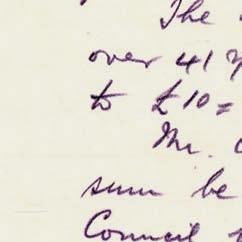 The
over 41
to £10=
Mr.
sum be
Council